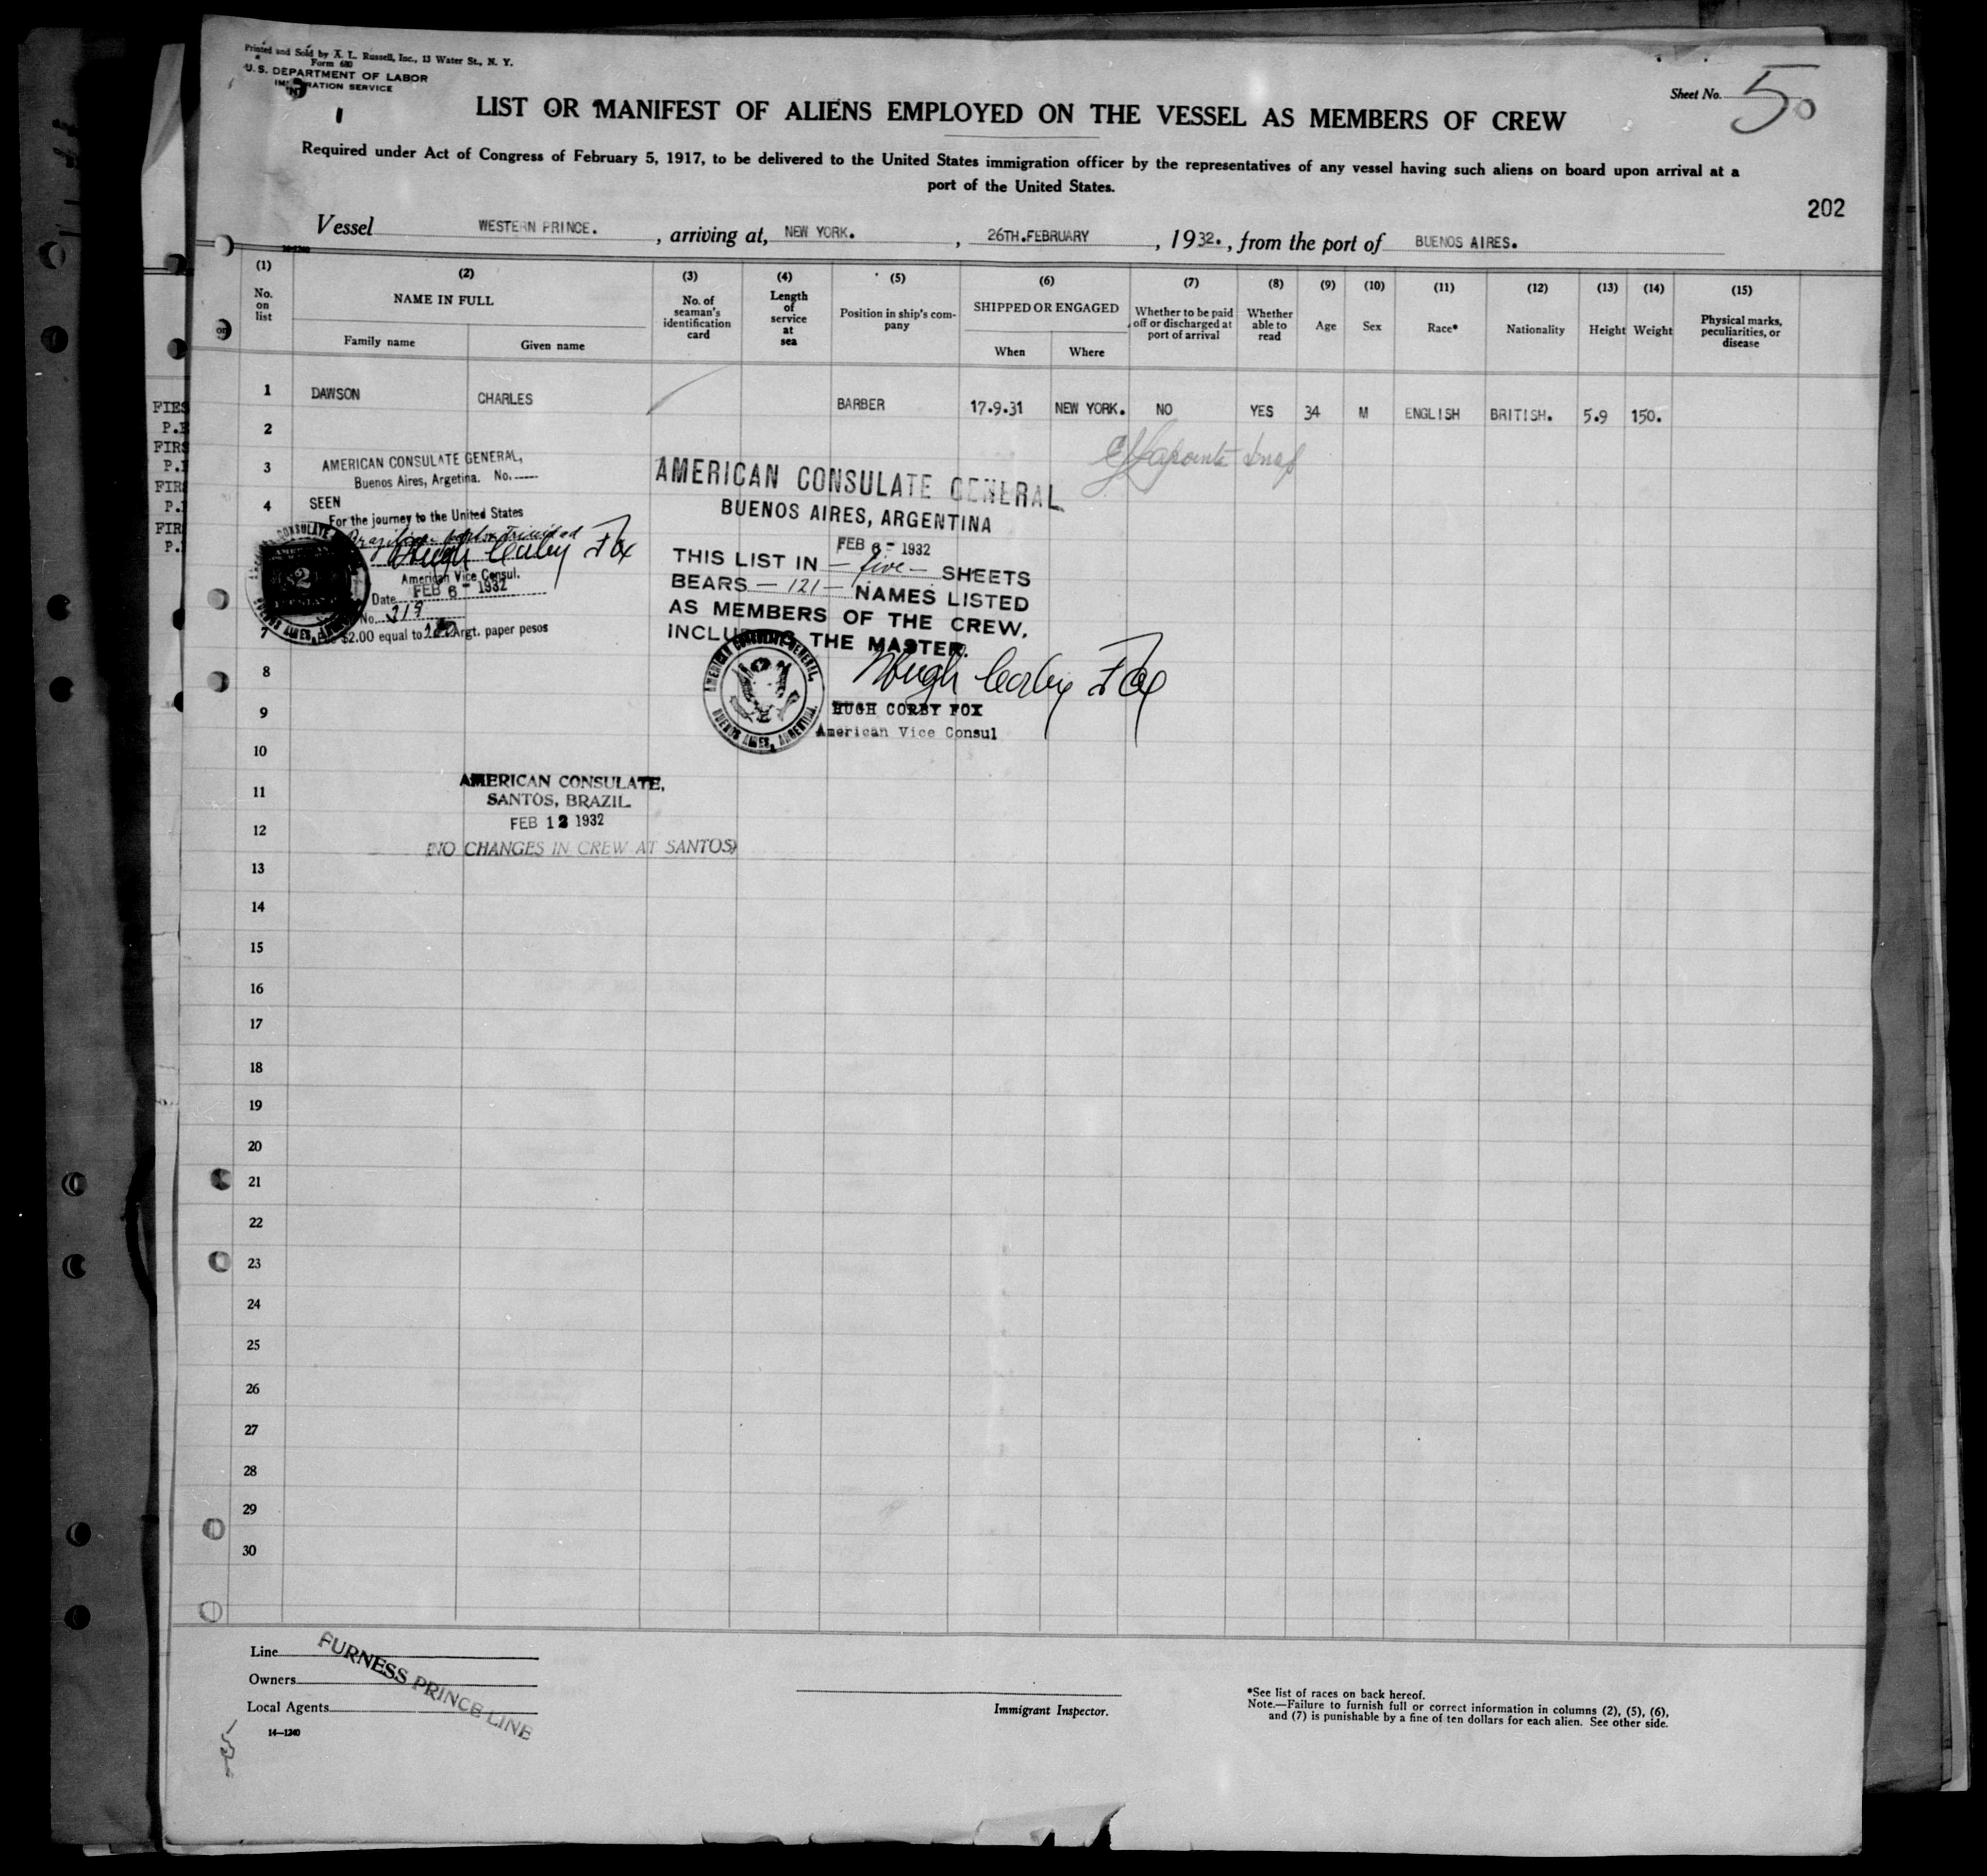 Printed and Sold by A. L. Russell, Inc., 13 Water St., N. Y.
Form 680
U. S. DEPARTMENT OF LABOR
IMMIGRATION SERVICE
Sheet No. 5
LIST OR MANIFEST OF ALIENS EMPLOYED ON THE VESSEL AS MEMBERS OF CREW
Required under Act of Congress of February 5, 1917, to be delivered to the United States immigration officer by the representatives of any vessel having such aliens on board upon arrival at a
port of the United States.
202
Vessel WESTERN PRINCE. , arriving at, NEW YORK. , 26TH.FEBRUARY , 1932. , from the port of BUENOS AIRES.
(1) (2) (3) (4) (5) (6) (7) (8) (9) (10) (11) (12) (13) (14) (15)
No. on list NAME IN FULL Family name Given name No. of seaman's identification card Length of service at sea Position in ship's company SHIPPED OR ENGAGED When Where Whether to be paid off or discharged at port of arrival Whether able to read Age Sex Race* Nationality Height Weight Physical marks, peculiarities, or disease
1 DAWSON CHARLES BARBER 17.9.31 NEW YORK. NO YES 34 M ENGLISH BRITISH. 5.9 150.
2
3
4
7
8
9
10
11
12
13
14
15
16
17
18
19
20
21
22
23
24
25
26
27
28
29
30
AMERICAN CONSULATE GENERAL,
Buenos Aires, Argetina. No.
SEEN
For the journey to the United States
Hugh Corby Fox
American Vice Consul.
Date FEB 6 - 1932
No. 219
$2.00 equal to Argt. paper pesos
AMERICAN CONSULATE GENERAL
BUENOS AIRES, ARGENTINA
FEB 6 - 1932
THIS LIST IN - five - SHEETS
BEARS - 121 - NAMES LISTED
AS MEMBERS OF THE CREW,
INCLUDING THE MASTER.
AMERICAN CONSULATE GENERAL, BUENOS AIRES, ARGENTINA.
Hugh Corby Fox
HUGH CORBY FOX
American Vice Consul
AMERICAN CONSULATE,
SANTOS, BRAZIL
FEB 12 1932
(NO CHANGES IN CREW AT SANTOS)
Line
Owners
Local Agents
FURNESS PRINCE LINE
14—1240
Immigrant Inspector.
*See list of races on back hereof.
Note.—Failure to furnish full or correct information in columns (2), (5), (6),
and (7) is punishable by a fine of ten dollars for each alien. See other side.